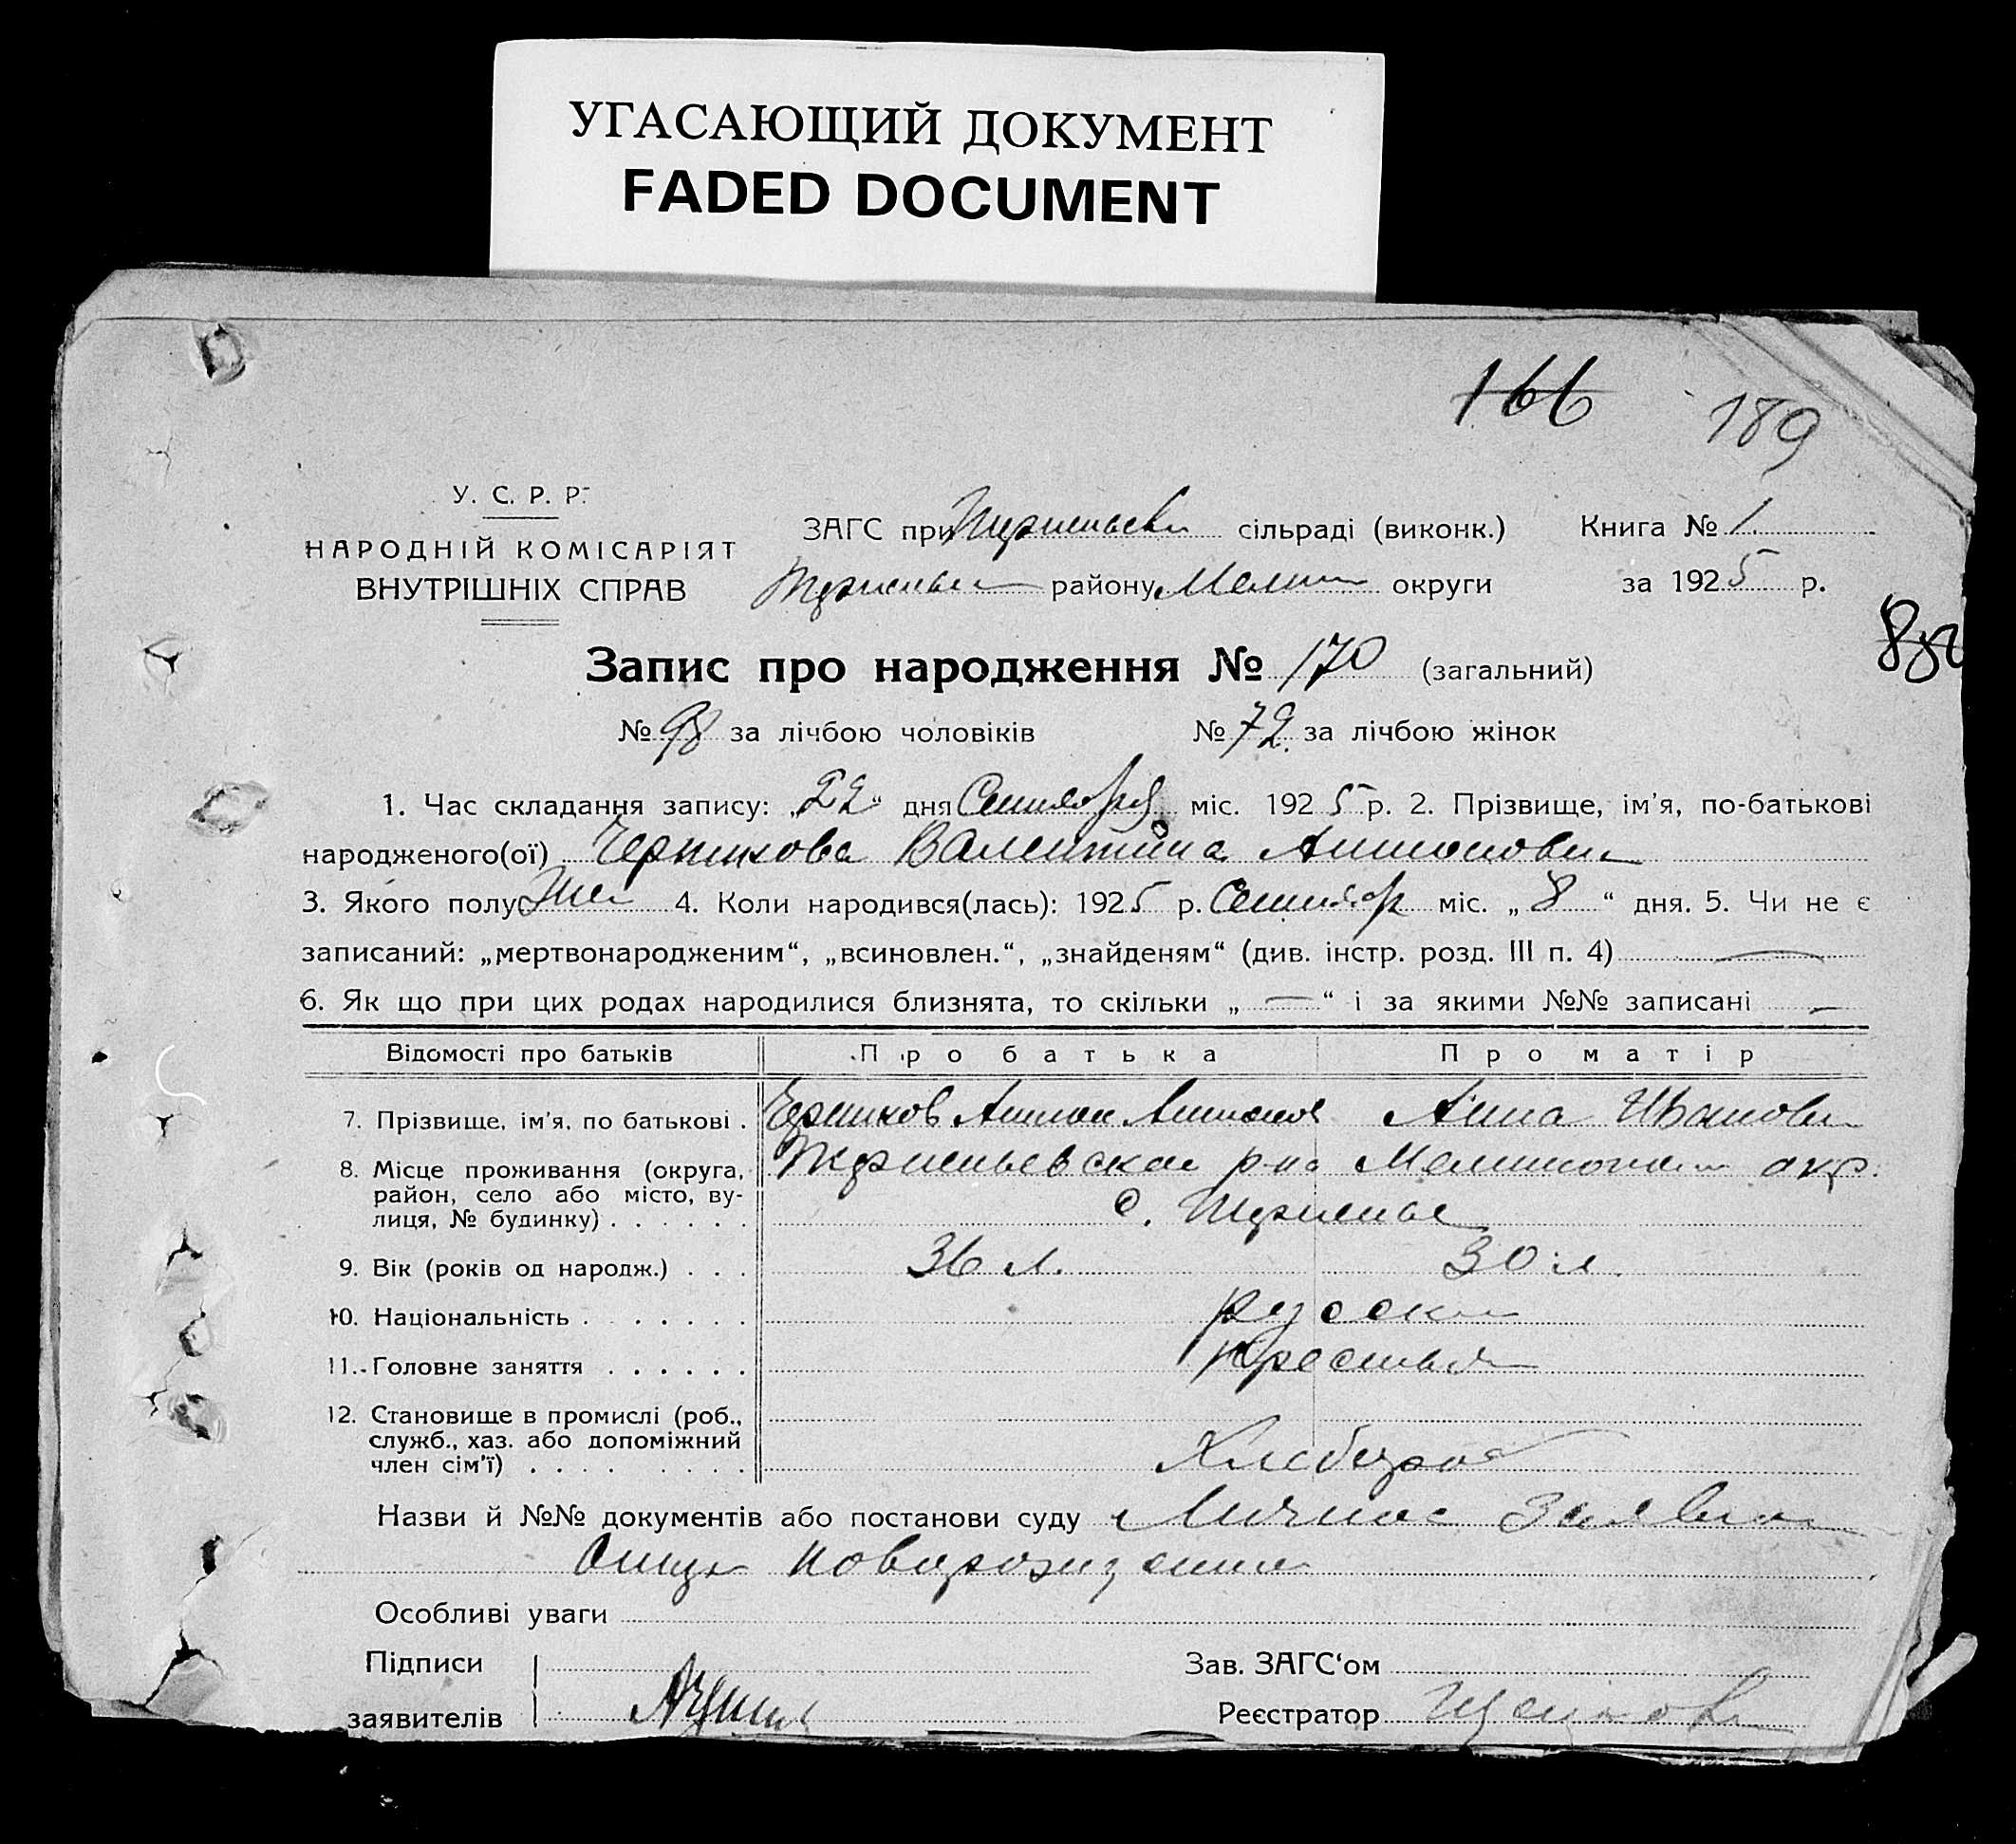 УГАСАЮЩИЙ ДОКУМЕНТ
FADED DOCUMENT
166 189
У. С. Р. Р.
НАРОДНІЙ КОМІСАРІЯТ
ВНУТРІШНІХ СПРАВ
ЗАГС при сільраді (виконк.) Книга № 1.
району Мелит округи за 1925 р.
Запис про народження № 170 (загальний)
№ 98 за лічбою чоловіків № 72 за лічбою жінок
1. Час складання запису: „22“ дня Сентября міс. 1925 р. 2. Прізвище, ім'я, по-батькові
народженого(ої) Валентина Антоновн
3. Якого полу Жен 4. Коли народився(лась): 1925 р. Сентябр міс. „8“ дня. 5. Чи не є
записаний: „мертвонародженим“, „всиновлен.“, „знайденям“ (див. інстр. розд. III п. 4) —
6. Як що при цих родах народилися близнята, то скільки „—“ і за якими №№ записані —
Відомості про батьків Про батька Про матір
7. Прізвище, ім'я, по батькові . Антон Антонов Анна Иванов
8. Місце проживання (округа, р-на окр.
район, село або місто, ву- с.
лиця, № будинку) . . . . . .
9. Вік (років од народж.) . . . 36 л. 30 л.
10. Національність . . . . . . . русск
11. Головне заняття . . . . . . Крестья
12. Становище в промислі (роб.,
служб., хаз. або допоміжний
член сім'ї) . . . . . . . . Хлебороб
Назви й №№ документів або постанови суду Личное заявл
Отца новорожденн
Особливі уваги
Підписи Зав. ЗАГС‘ом
заявителів Реєстратор